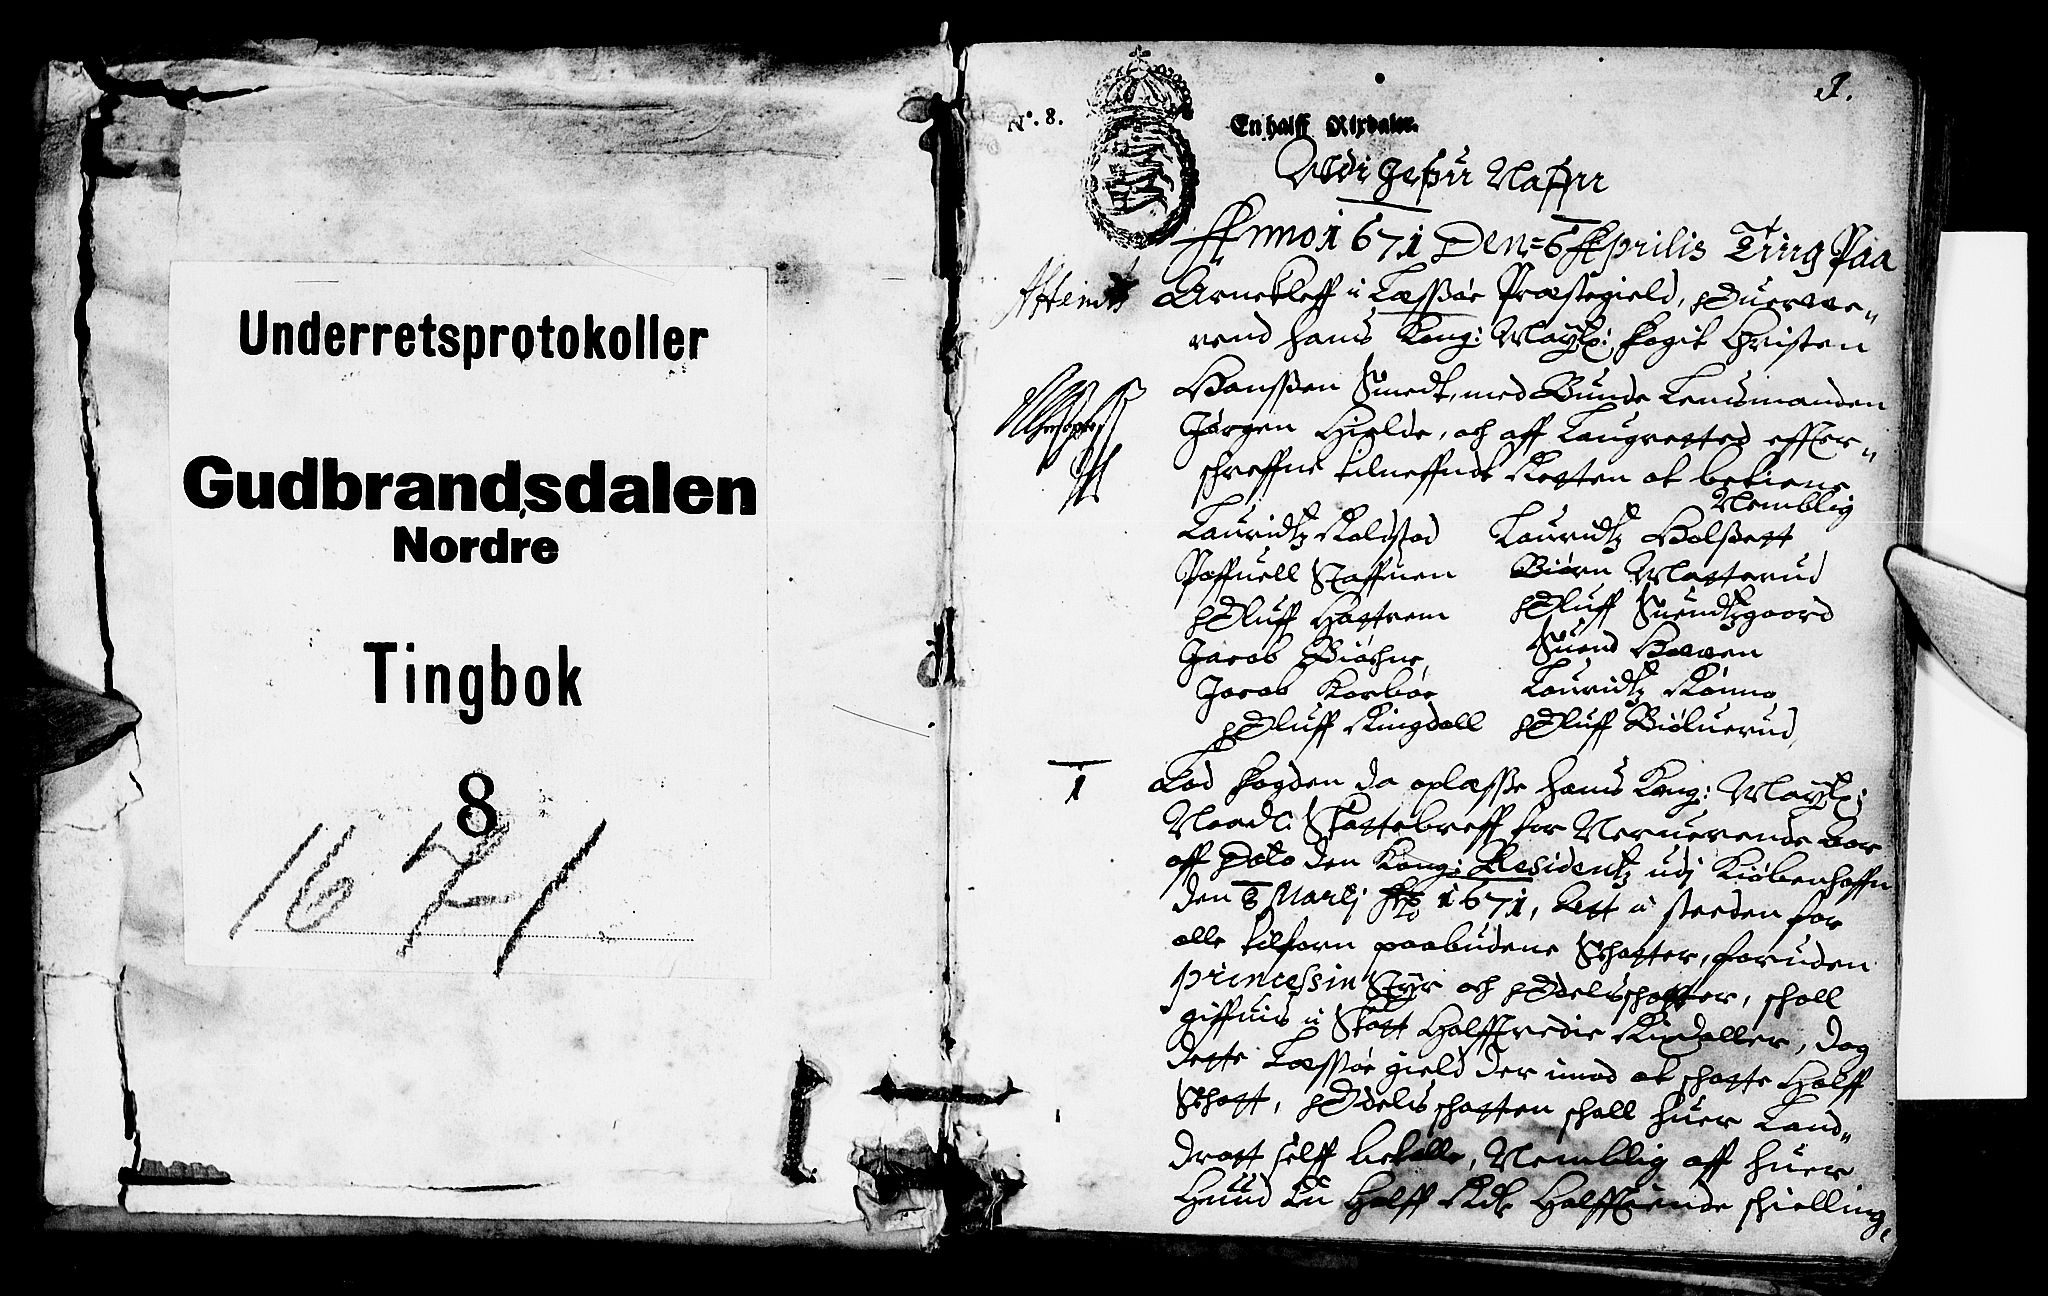 Underretsprotokoller
Gudbrandsdalen
Nordre
Tingbok
8
1671
1.
No. 8.
En halff Rixdaler.
Udi Jesu Nafn
Anno 1671 Den 6 Aprilis Ting Paa
Arnekleff i Læssøe Præstegield, offuerwe-
rend hans Kong: Maytz: fogit Christen
Hanssen Smedt, med Bunde Lensmanden
Jørgen Hielde, och aff Laugretted effter-
schreffne tilneffnde Retten at betiene
Nemblig
Lauridtz Kolstad Lauridtz Holsett
Paffuell Staffuen Biørn Matterud
Oluff Hattrem Oluff Suendtzgaard
Jacob Biøchne, Suend Howen
Jacob Korbøe Lauridtz Rønno
Oluff Ringdall Oluff Biøluerud,
1 Lod fogden da oplæsse hans Kong: Maytz:
Naadi: Skattebreff for Neruerende Aar
aff Dato den Kong: Residentz udj Kiøbenhaffn
den 8 Martj Ao 1671, Att i steeden for
alle tilforn paabudene Schatter, foruden
princessin Styr och Odelsschatter, schall
giffuis i Skatt Halfftredie Rixdaller, dog
dette Læssøe gield der imod at schatte Halff
Schatt, Odels schatten schall huer Land-
drott selff betalle, Nemblig aff huer
Huud en Halff Rdr Halfftiende schielling,